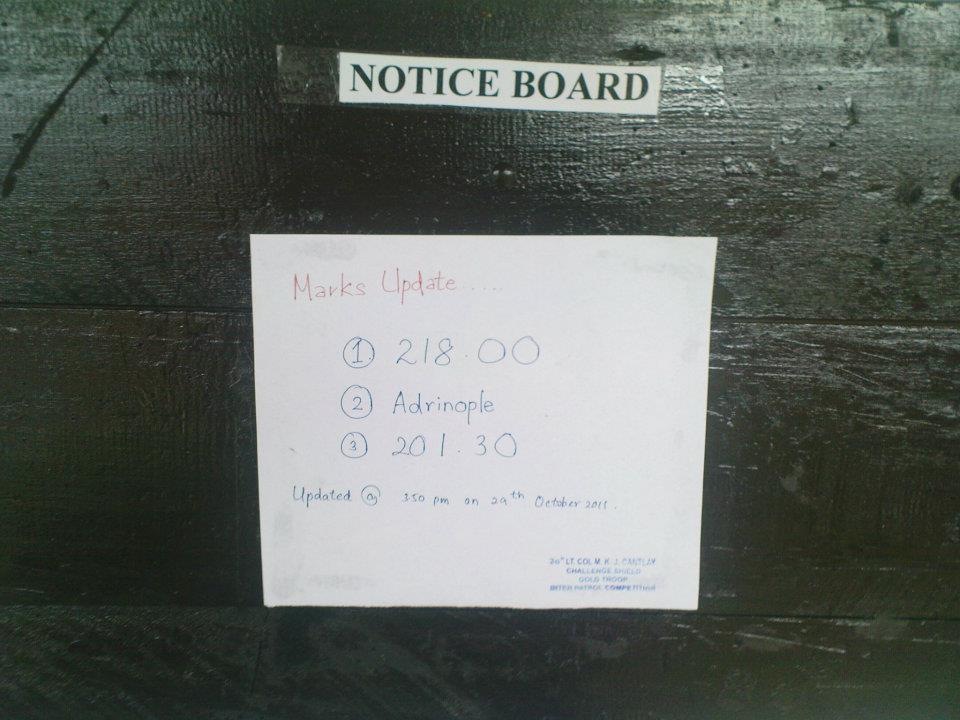 NOTICE BOARD
Marks Update.....
① 218.00
② Adrinople
③ 201.30
Updated @ 350 pm on 29th October 2011.
20th LT. COL M. K. J. CANTLAY
CHALLENGE SHIELD
GOLD TROOP
INTER PATROL COMPETITION